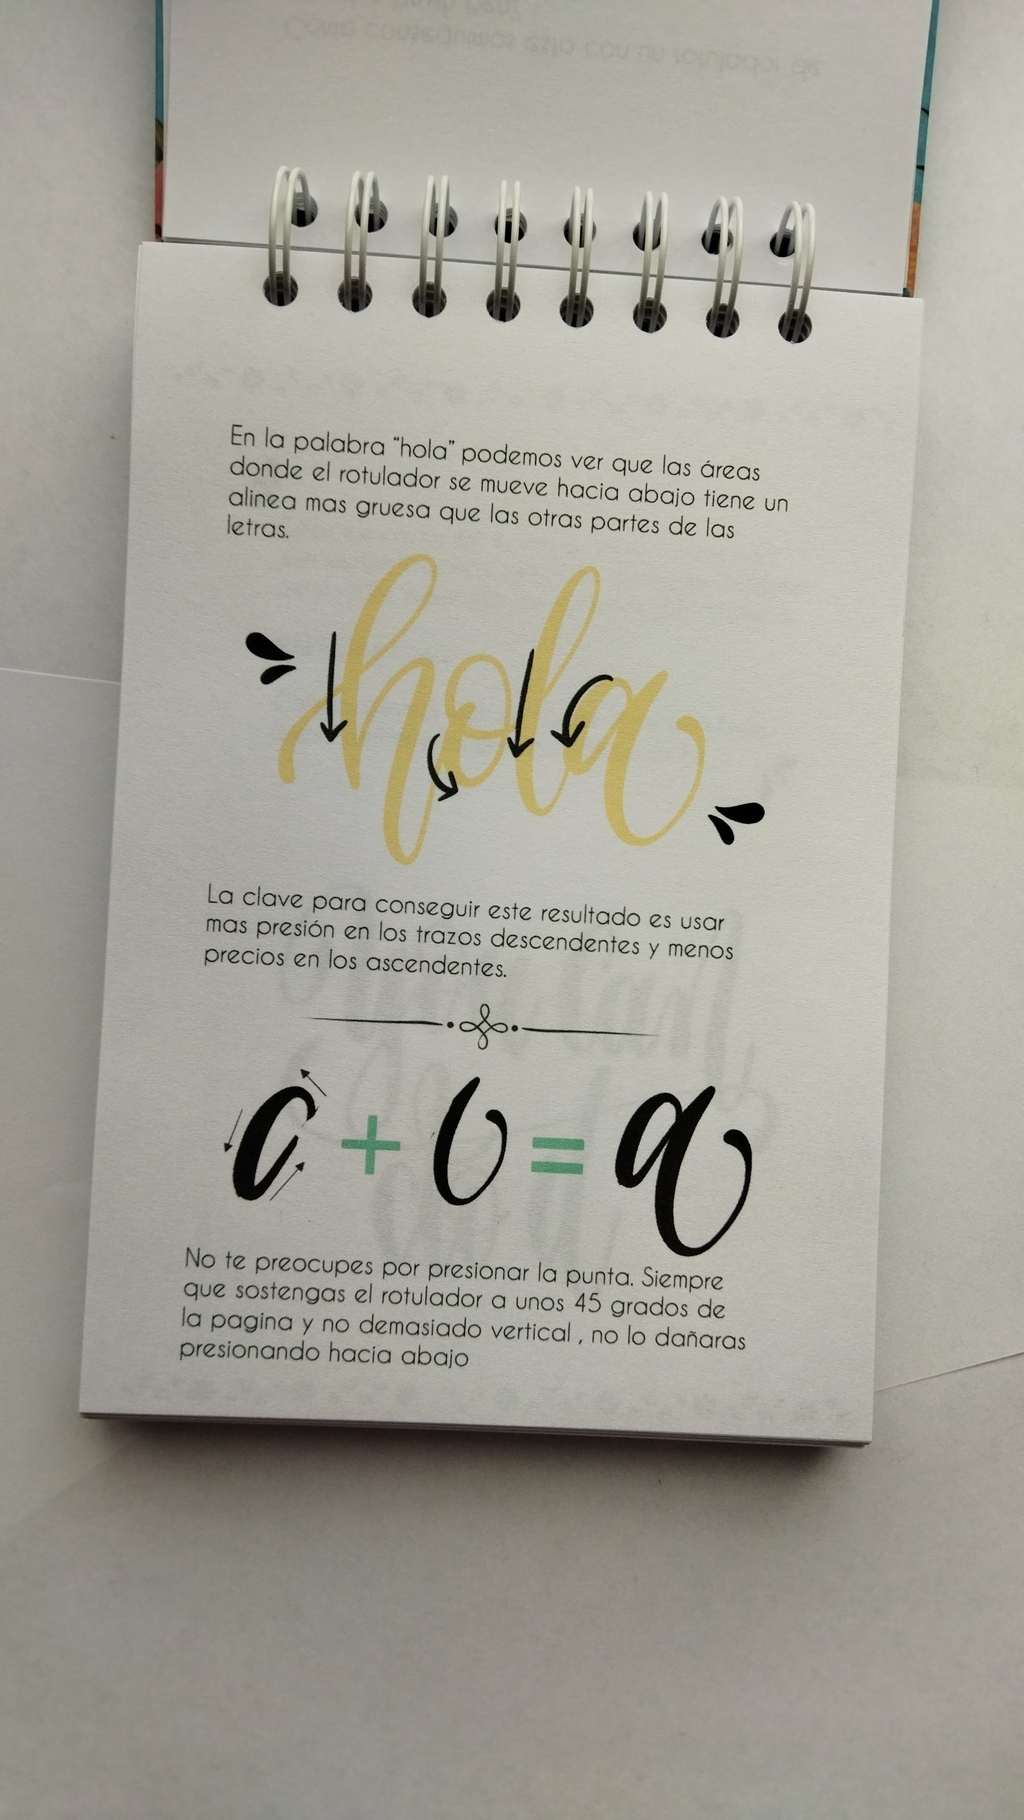 Como conseguimos esto con un rotulador de
En la palabra “hola” podemos ver que las áreas
donde el rotulador se mueve hacia abajo tiene un
alinea mas gruesa que las otras partes de las
letras.
hola
La clave para conseguir este resultado es usar
mas presión en los trazos descendentes y menos
precios en los ascendentes.
c + ı = a
No te preocupes por presionar la punta. Siempre
que sostengas el rotulador a unos 45 grados de
la pagina y no demasiado vertical , no lo dañaras
presionando hacia abajo